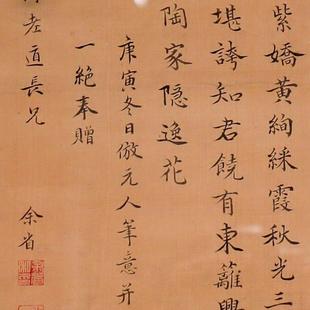 紫嬌黃絢綵霞秋光三
堪誇知君饒有東籬興
陶家隐逸花
庚寅冬日倣元人筆意并
一絶奉贈
老道長兄
余省